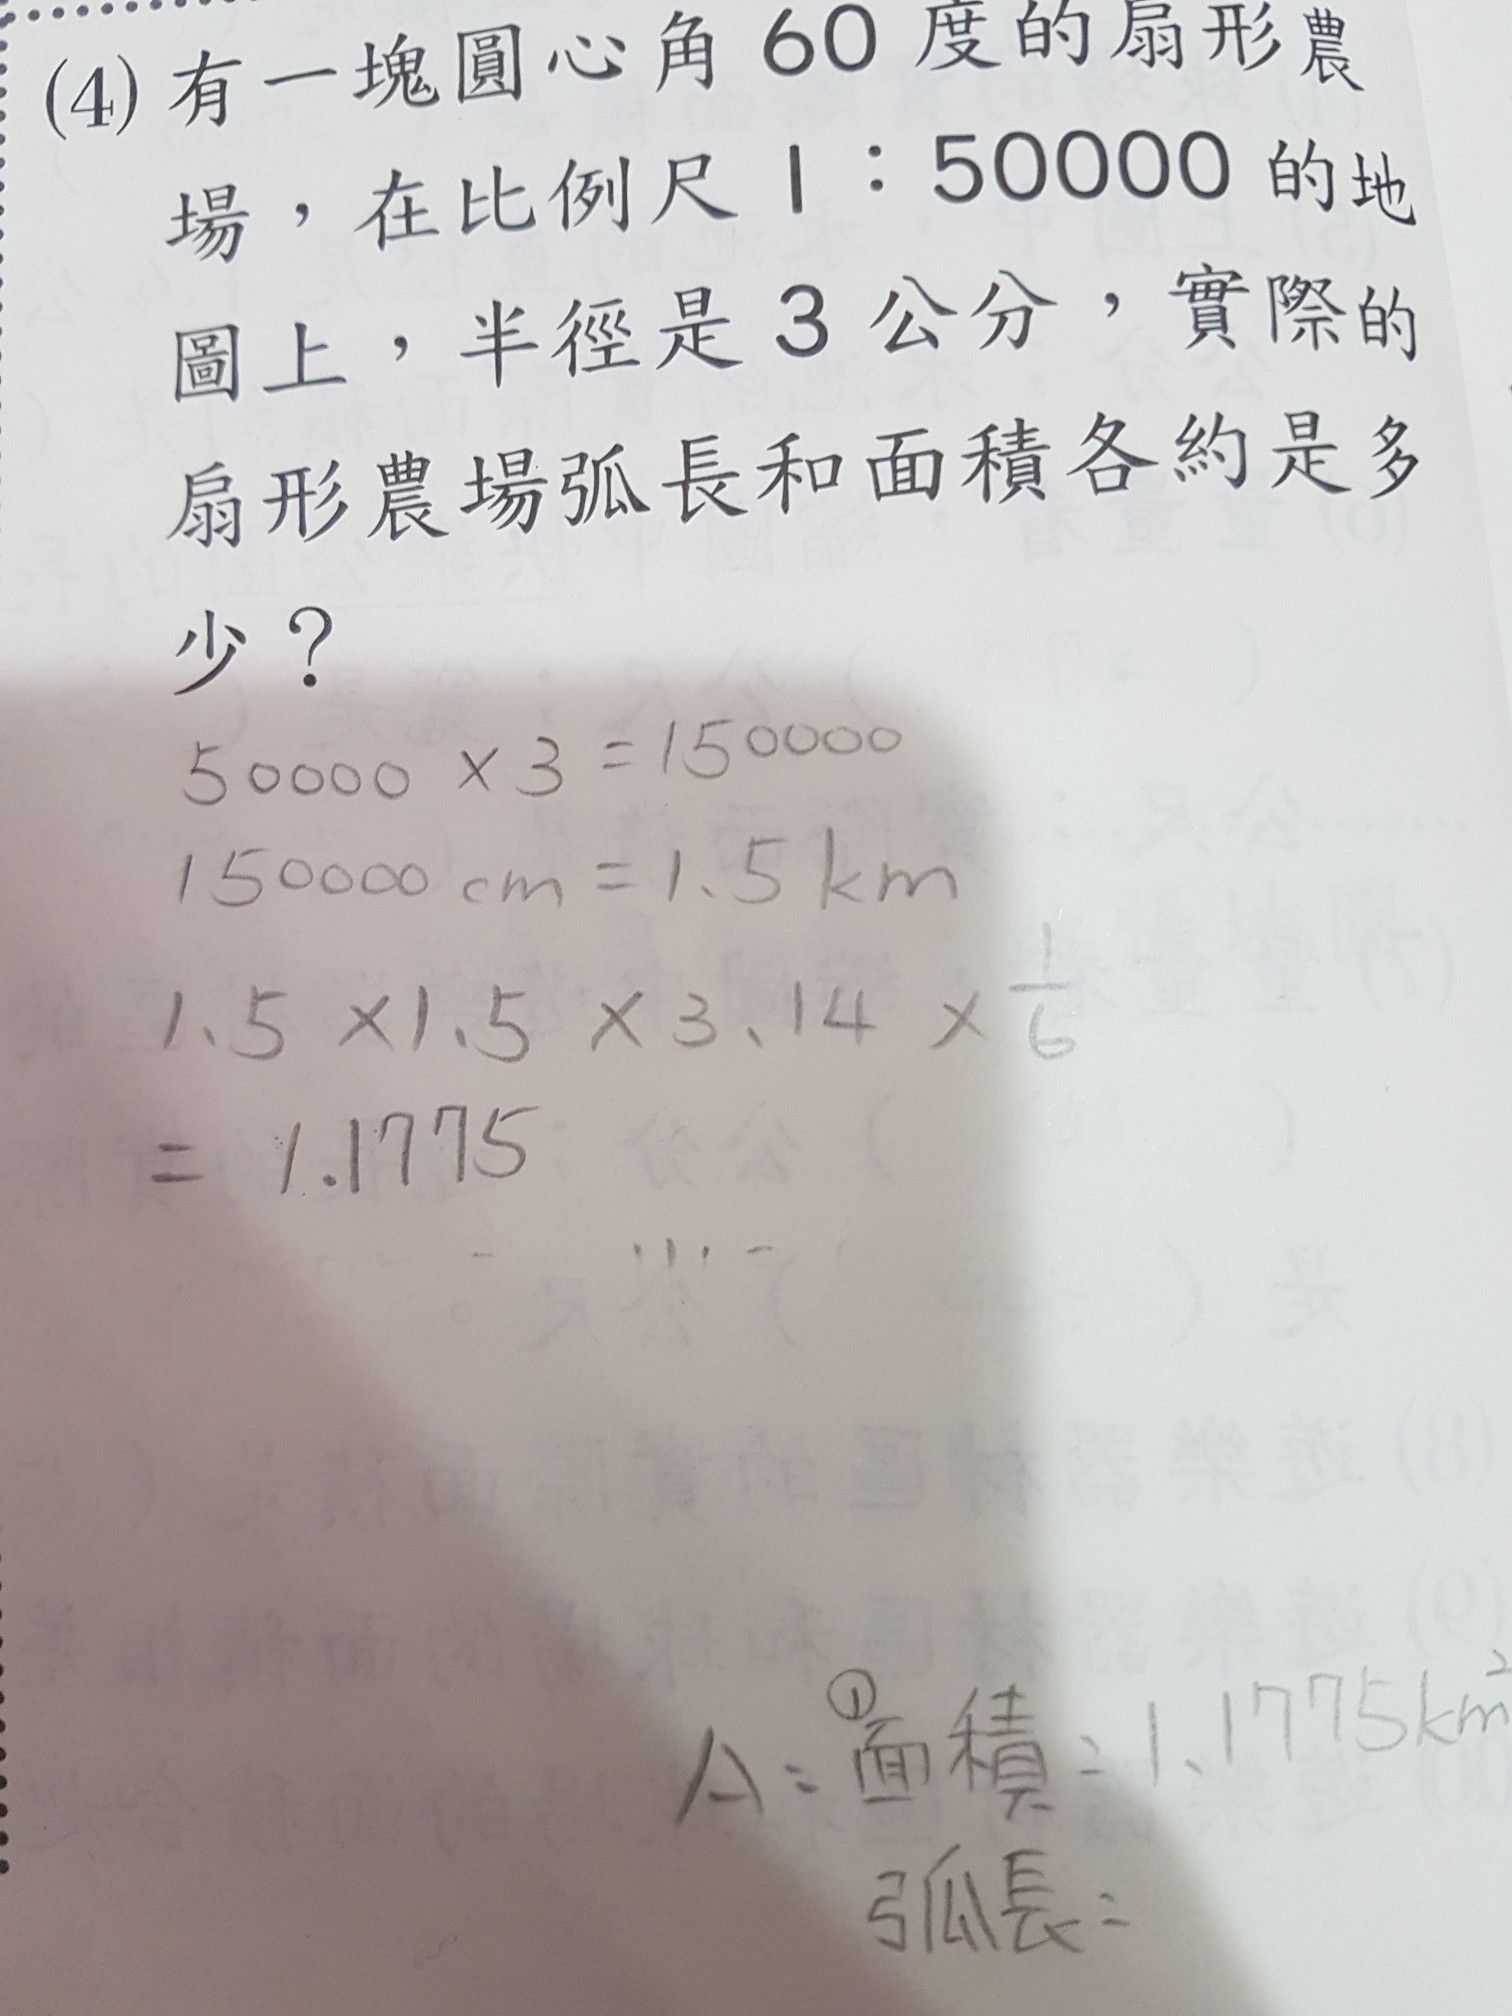 (4) 有一塊圓心角 60 度的扇形農
場，在比例尺 1：50000 的地
圖上，半徑是 3 公分，實際的
扇形農場弧長和面積各約是多
少？
50000 × 3 = 150000
150000 cm = 1.5 km
1.5 × 1.5 × 3.14 × 1/6
= 1.1775
A = ①面積 = 1.1775 km²
弧長 =